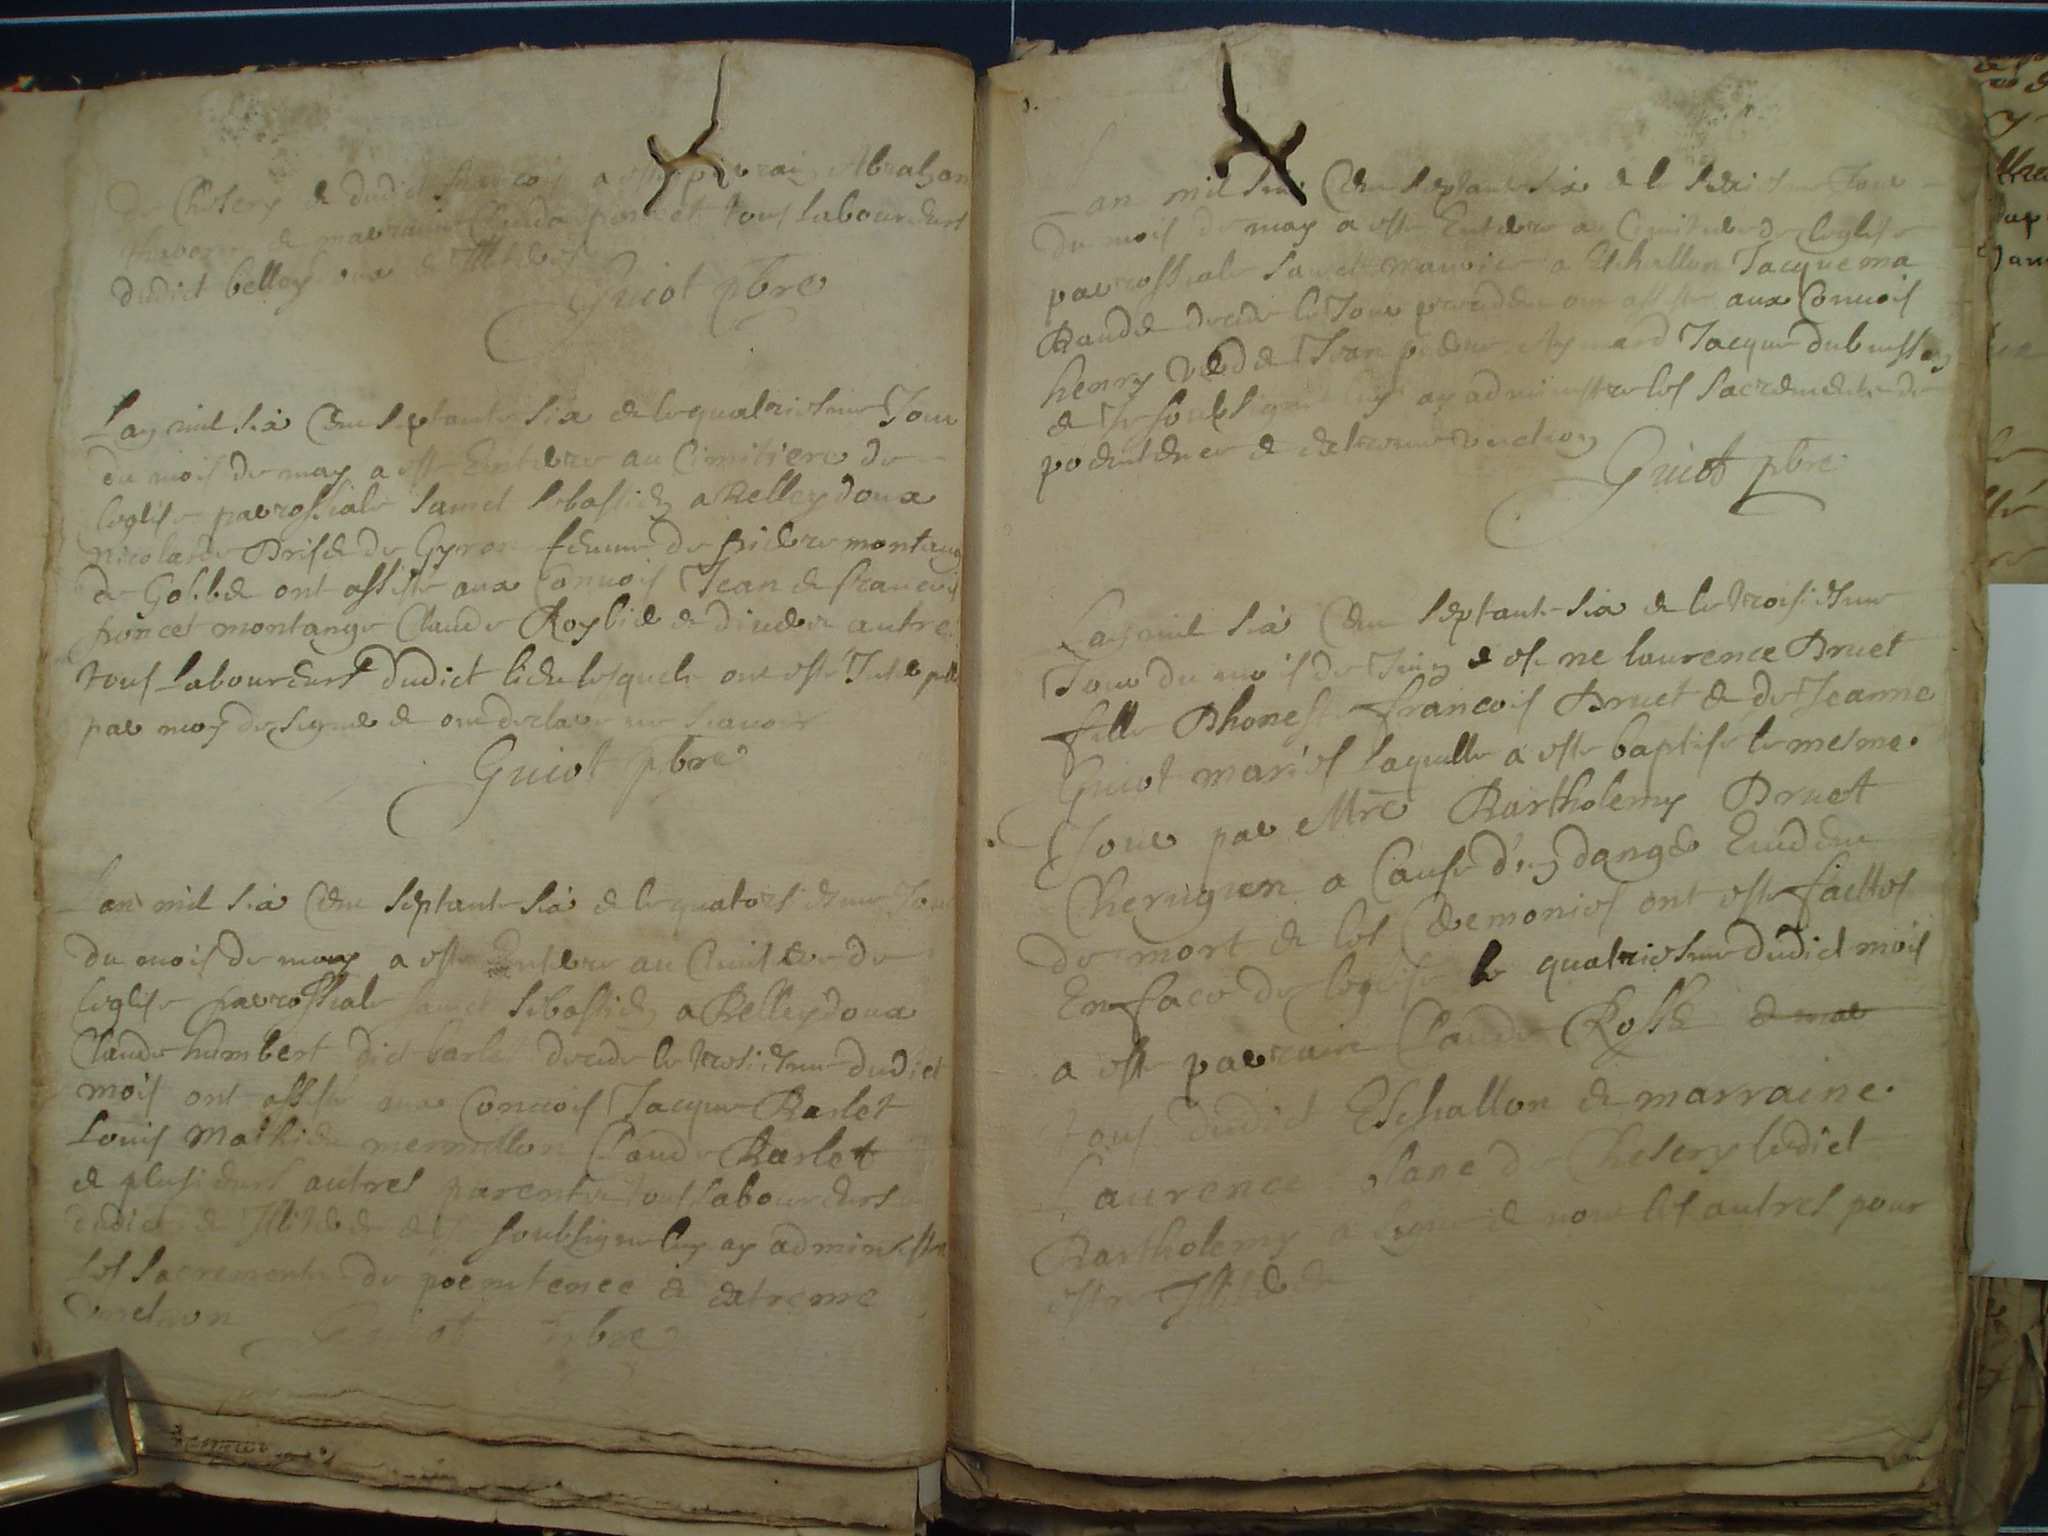 de Chesery & dudict francois a esté parrain Abraham
& marraine Clauda poncet tous laboureurs
dudict belleydoux & Illiterés
Guiot pbre
Lan mil six cens septante six & le quatriesme Jour
du mois de may a esté Enterre au Cimitiere de
leglise parrossiale sainct sebastien a Belleydoux
nicolarde Brise de Gyron femme de pierre montange
de Gobet ont assisté aux Convois Jean & francois
poncet montange Claude Roybié & divers autres
tous laboureurs dudict lieu lesquels ont esté Interpellé
par moy de signer & ont declaré ne scavoir
Guiot pbre
Lan mil six cens septante six & le quatorsiesme Jour
du mois de may a esté Enterre au Cimitiere de
leglise parrossiale sainct sebastien a Belleydoux
Claude humbert dict barlet decede le tresiesme dudict
mois ont assisté aux Convois Jacque Barlet
Louis Mathieu mermillon Claude Barlet
& plusieurs autres parents tous laboureurs
dudict & Illiteres & Je soubsigne luy ay administre
les sacrements de poenitence & extreme
onction Guiot pbre
Lan mil six cens septante six & le Jour
du mois de may a esté Enterre au Cimitiere de leglise
parrossiale sainct maurice a Eschallon Jacquema
Baudet decede le Jour precedent ont assisté aux Convois
henry & Jean pierre Aymard Jacque dubuisson
& Je soubsigne luy ay administre les sacrements de
poenitence & extreme onction
Guiot pbre
Lan mil six cens septante six & le troisiesme
Jour du mois de Juin est ne laurence Druet
fille Dhoneste francois Druet & de Jeanne
Guiot mariés laquelle a esté baptisé le mesme
Jour par Mre Bartholemy Druet
Cherugien a Cause d'un danger Evident
de mort & les Ceremonies ont esté faictes
En face de leglise le quatriesme dudict mois
a esté parrain Claude Rosset & mar
tous dudict Eschallon & marraine
Laurence de Chesery ledict
Bartholemy a signé & non les autres pour
estre Illiteres